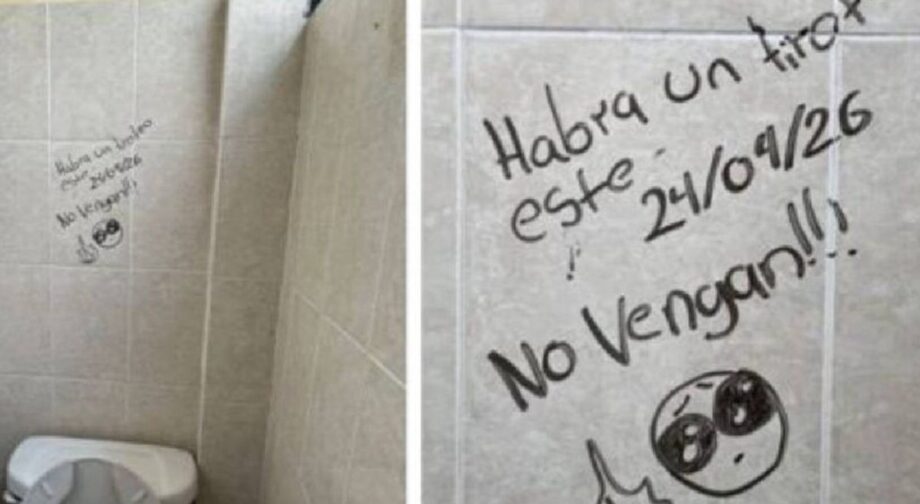 Habra un tiroteo
este 24/04/26
No Vengan!!!
Habra un tirot
este 24/04/26
No Vengan!!!